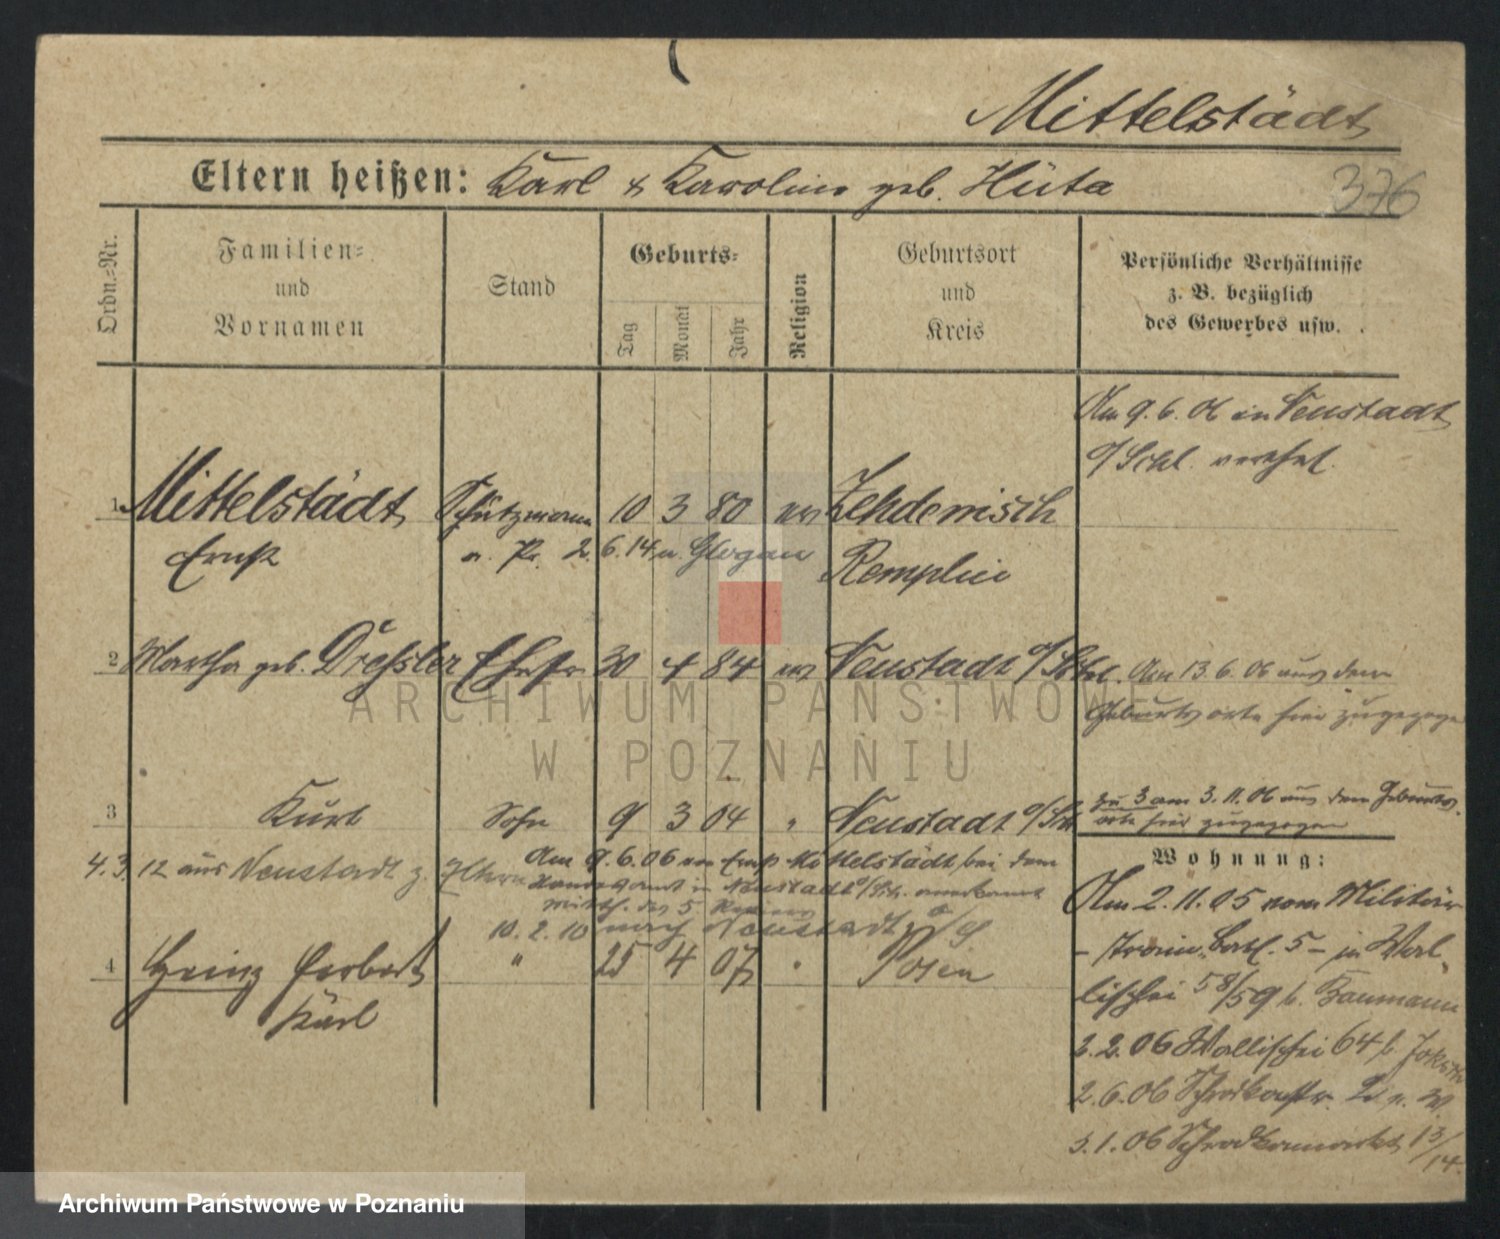 Mittelstädt
Eltern heißen: Karl & Karoline geb. Hüta
376
Ordn.-Nr.
Familien-
und
Vornamen
Stand
Geburts-
Tag
Monat
Jahr
Religion
Geburtsort
und
Kreis
Persönliche Verhältnisse
z. B. bezüglich
des Gewerbes usw.
Am 9. 6. 06 in Neustadt
O/Schl. verehel.
1 Mittelstädt Schutzmann 10 3 80 ev Zehdenisch
Ernst n. Pr. 2. 6. 14 n. Glogau Remplin
2 Martha geb. Dreßler Ehefr 30 4 84 ev Neustadt O/Schl. Am 13. 6. 06 aus dem
Geburtsorte hier zugezogen
3 Kurt Sohn 9 3 04 " Neustadt O/Schl
zu 3 am 3. 11. 06 aus dem Geburts-
orte hier zugezogen
4. 3. 12 aus Neustadt z. Eltern
Am 9. 6. 06 von Ernst Mittelstädt bei dem
Standesamt in Neustadt O/Sch. anerkannt
10. 2. 10 nach Neustadt O/S
4 Heinz Herbert " 25 4 07 " Posen
Karl
Wohnung:
Am 2. 11. 05 vom Militär
- Train. Batl. 5 - in Wal-
lischei 58/59 b. Baumann
3. 2. 06 Wallischei 64 b.
2. 6. 06
5. 1. 06 Schrodkamarkt 13/14.
ARCHIWUM PAŃSTWOWE
W POZNANIU
Archiwum Państwowe w Poznaniu